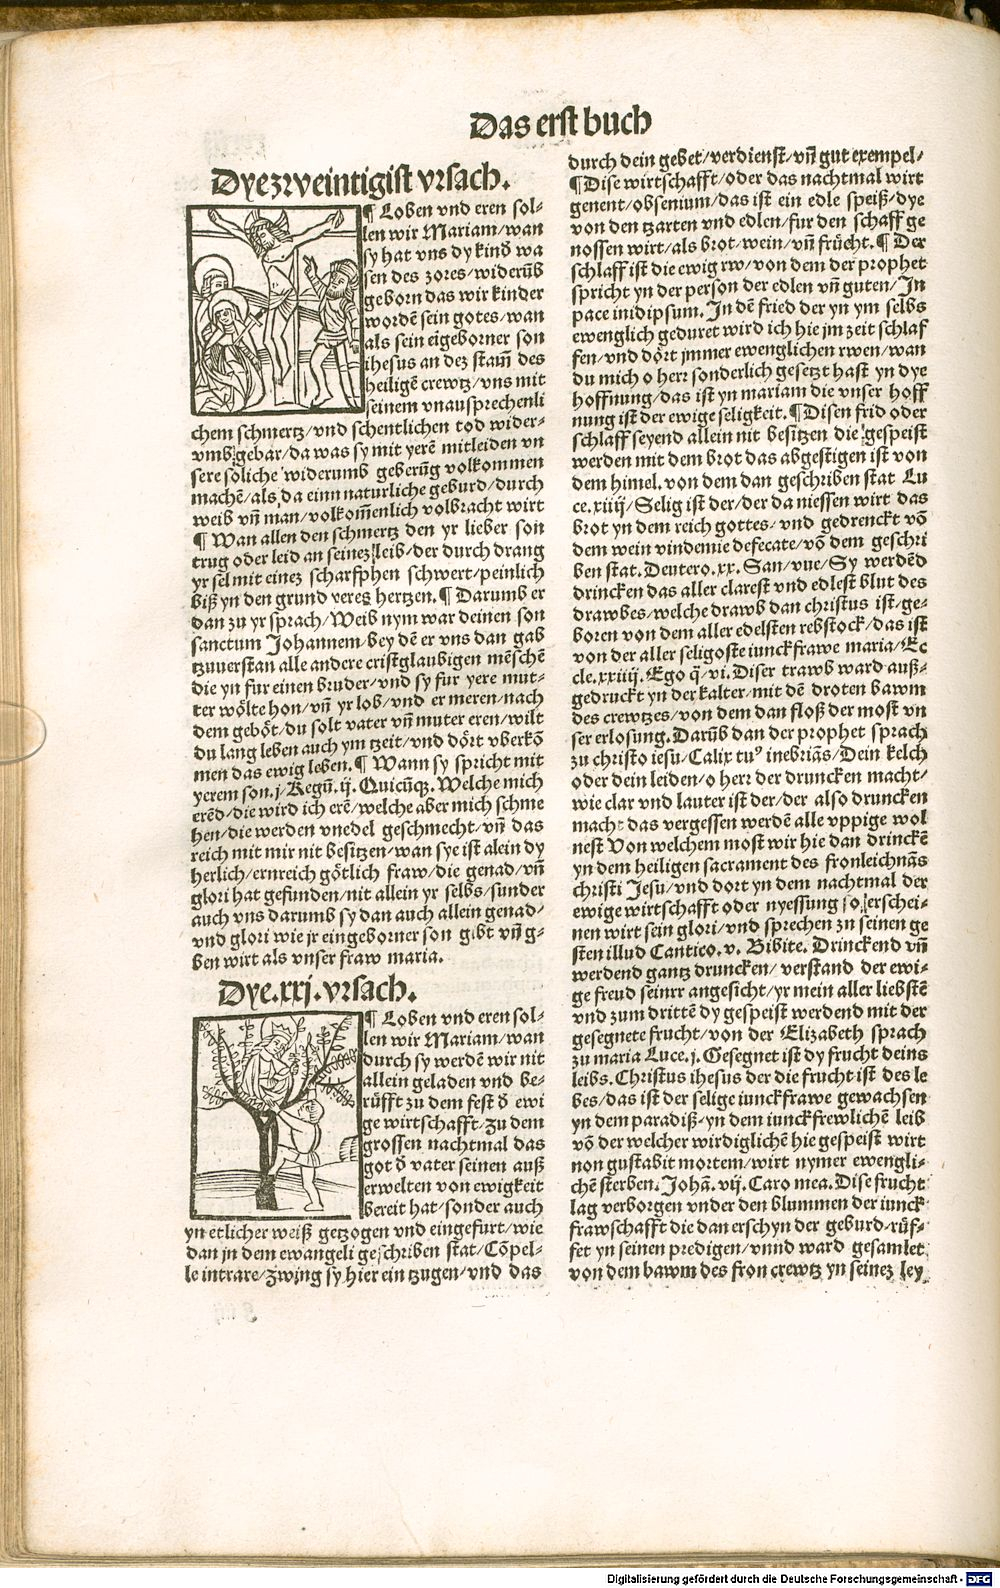 Das erst buch
Dye zweintigist vrsach.
¶ Loben vnd eren sol⸗
len wir Mariam/wan
sy hat vns dy kind̄ wa
sen des zores/widerūb
geborn das wir kinder
wordē sein gotes/wan
als sein eigeborner son
ihesus an dez stam̄ des
heiligē crewtz/vns mit
seinem vnausprechenli
chem schmertz/vnd schentlichen tod wider⸗
vmb gebar/da was sy mit yerē mitleiden vn
sere soliche widerumb geberūg volkommen
machē/als da einn naturliche geburd/durch
weib vn̄ man/volkom̄enlich volbracht wirt
¶ Wan allen den schmertz den yr lieber son
trug oder leid an seinez leib/der durch drang
yr sel mit einez scharfphen schwert/peinlich
biß yn den grund veres hertzen. ¶ Darumb er
dan zu yr sprach/Weib nym war deinen son
sanctum Johannem/bey dē er vns dan gab
tzuuerstan alle andere cristglaubigen mēschē
die yn fur einen bruder/vnd sy fur yere mut⸗
ter wölte hon/vn̄ yr lob/vnd er meren/nach
dem geböt/du solt vater vn̄ muter eren/wilt
du lang leben auch ym tzeit/vnd dört vberkō
men das ewig leben. ¶ Wann sy spricht mit
yerem son.j/Regū.ij. Quicūqz. Welche mich
erēd/die wird ich erē/welche aber mich schme
hen/die werden vnedel geschmecht/vn̄ das
reich mit mir nit besitzen/wan sye ist alein dy
herlich/ernreich götlich fraw/die genad/vn̄
glori hat gefunden/nit allein yr selbs/sunder
auch vns darumb sy dan auch allein genad⸗
vnd glori wie jr eingeborner son gibt vn̄ g⸗
ben wirt als vnser fraw maria.
Dye.xxj.vrsach.
¶ Loben vnd eren sol⸗
len wir Mariam/wan
durch sy werdē wir nit
allein geladen vnd be⸗
rüfft zu dem fest d̄ ewi
ge wirtschafft/zu dem
grossen nachtmal das
got d̄ vater seinen auß
erwelten von ewigkeit
bereit hat/sonder auch
yn etlicher weiß getzogen vnd eingefurt/wie
dan jn dem ewangeli geschriben stat/Cōpel⸗
le intrare/zwing sy hier ein tzugen/vnd das
durch dein gebet/verdienst/vn̄ gut exempel/
¶ Dise wirtschafft/oder das nachtmal wirt
genent/obsenium/das ist ein edle speiß/dye
von den tzarten vnd edlen/fur den schaff ge
nossen wirt/als brot/wein/vn̄ frücht. ¶ Der
schlaff ist die ewig rw/von dem der prophet
spricht yn der person der edlen vn̄ guten/In
pace inidipsum. In dē fried der yn ym selbs
ewenglich geduret wird ich hie jm zeit schlaf
fen/vnd dört jmmer ewenglichen rwen/wan
du mich o herr sonderlich gesetzt hast yn dye
hoffnung/das ist yn mariam die vnser hoff
nung ist der ewige seligkeit. ¶ Disen frid oder
schlaff seyend allein nit besitzen die gespeist
werden mit dem brot das abgestigen ist von
dem himel. von dem dan geschriben stat Lu
ce.xiiij/Selig ist der/der da niessen wirt das
brot yn dem reich gottes/vnd gedrenckt vō
dem wein vindemie defecate/vō dem geschri
ben stat. Deutero.xx. San/vue/Sy werdēd
drincken das aller clarest vnd edlest blut des
drawbes/welche drawb dan christus ist/ge⸗
boren von dem aller edelsten rebstock/das ist
von der aller seligoste iunckfrawe maria/Ec
cle.xxiiij. Ego q̄/vi. Diser trawb ward auß⸗
gedruckt yn der kalter/mit dē droten bawm
des crewtzes/von dem dan floß der most vn
ser erlosung. Darūb dan der prophet sprach
zu christo iesu/Calix tuꝰ inebriās/Dein kelch
oder dein leiden/o herr der druncken macht/
wie clar vnd lauter ist der/der also druncken
macht das vergessen werdē alle vppige wol
nest Von welchem most wir hie dan drinckē
yn dem heiligen sacrament des fronleichnās
christi Jesu/vnd dort yn dem nachtmal der
ewige wirtschafft oder nyessung so erschei⸗
nen wirt sein glori/vnd sprechen zu seinen ge
sten illud Cantico.v. Bibite. Drinckend vn̄
werdend gantz druncken/ verstand der ewi⸗
ge freud seinrr angesicht/yr mein aller liebstē
vnd zum drittē dy gespeist werdend mit der
gesegnete frucht/von der Elizabeth sprach
zu maria Luce.j. Gesegnet ist dy frucht deins
leibs. Christus ihesus der die frucht ist des le
bes/das ist der selige iunckfrawe gewachsen
yn dem paradiß/yn dem iunckfrewlichē leib
vō der welcher wirdiglichē hie gespeist wirt
non gustabit mortem/wirt nymer ewengli⸗
chē sterben. Johā. vij. Caro mea. Dise frucht
lag verborgen vnder den blummen der iunck
frawschafft die dan erschyn der geburd/rüf⸗
fet yn seinen predigen/vnnd ward gesamlet
von dem bawm des fron crewtz yn seinez ley
Digitalisierung gefördert durch die Deutsche Forschungsgemeinschaft - DFG